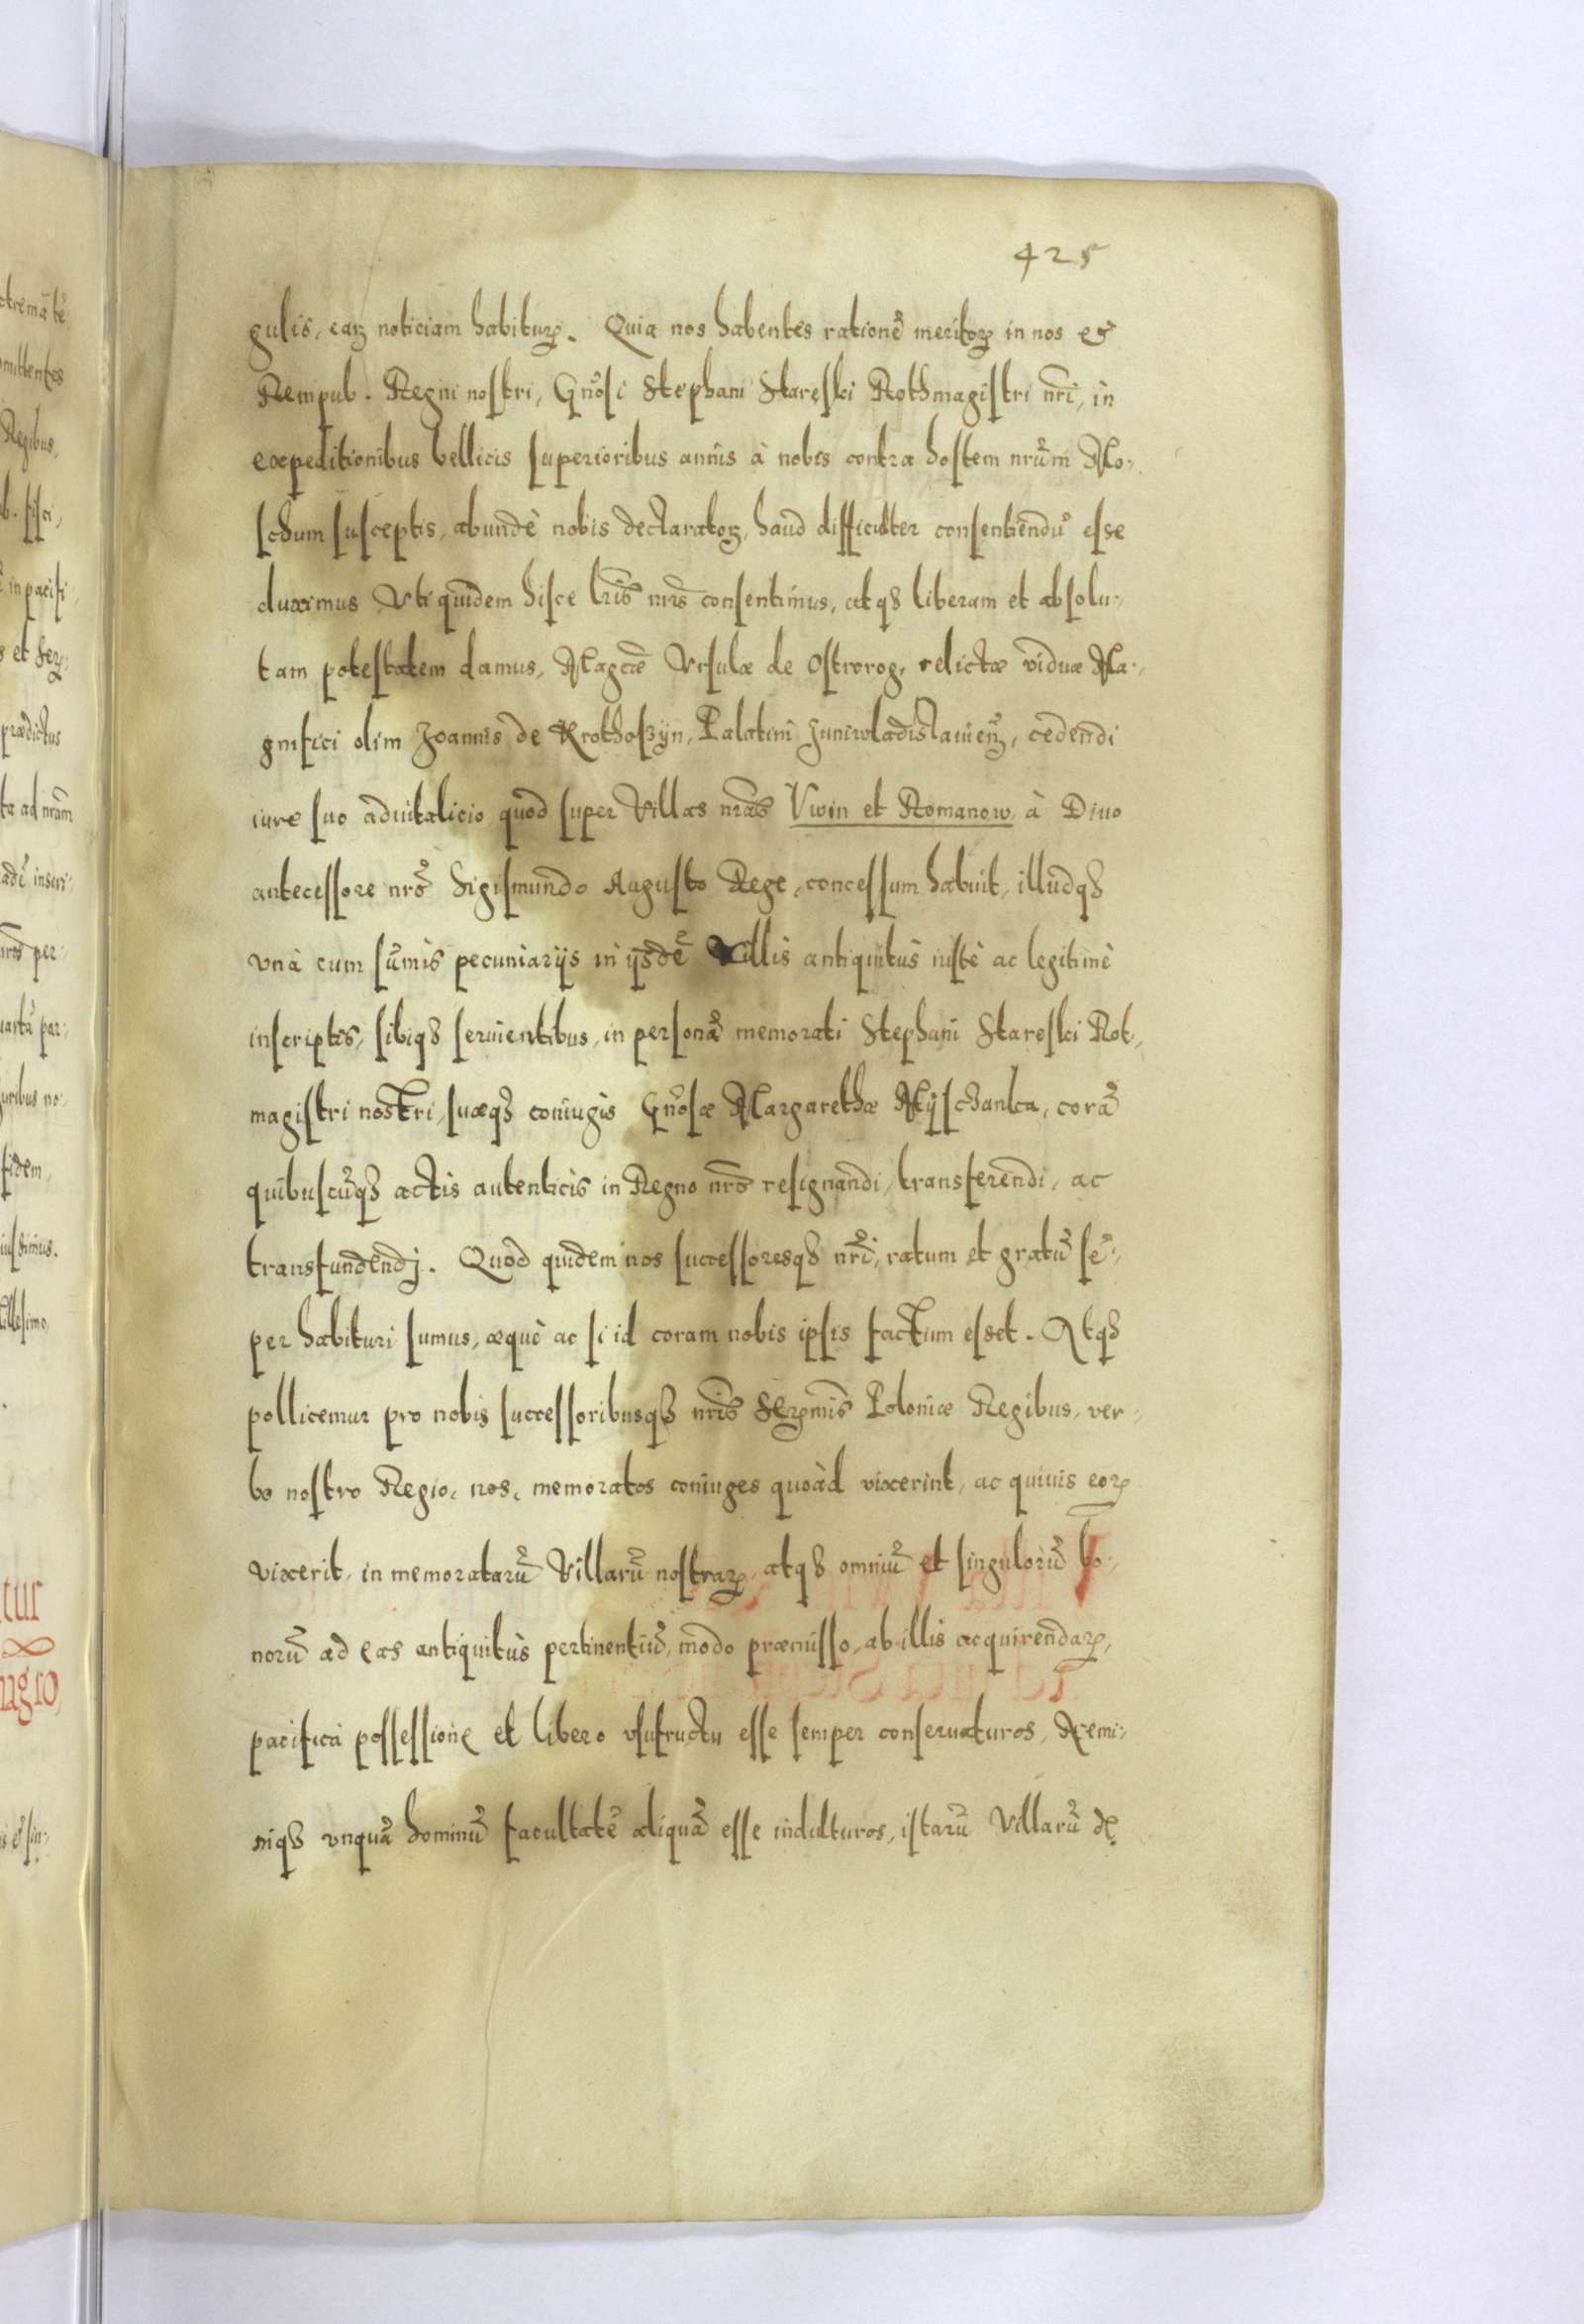 425
gulis, eaꝝ noticiam habituꝝ. Quia nos habentes rationē meritoꝝ in nos et
Rempub. Regni nostri, Gnosi Stephani Stareski Rothmagistri nri, in
expeditionibus bellicis superioribus annis à nobis contra hostem nrum Mo-
schum susceptis, abundè nobis declaratoꝝ, haud difficulter consentiendū esse
duximus Vti quidem hisce lris nris consentimus, atqꝫ liberam et absolu-
tam potestatem damus, Magcæ Vrsulæ de Ostrorog, relictæ viduæ Ma-
gnifici olim Joannis de Krothoszyn, Palatini Juniwladislauieñ, cedendi
iure suo aduitalicio quod super Villas nras Vwin et Romanow, à Diuo
antecessore nro Sigismundo Augusto Rege, concessum habuit, illudqꝫ
vnà cum sūmis pecuniarijs in ijsdē Villis antiquitùs iustè ac legitimè
inscriptis, sibiqꝫ seruientibus, in personā memorati Stephani Stareski Rot-
magistri nostri, suæqꝫ coniugis Gnosæ Margarethæ Myschanka, corā
quibuscūqꝫ actis autenticis in Regno nro resignandi, transferendi, ac
transfundendj. Quod quidem nos successoresqꝫ nri, ratum et gratū sē-
per habituri sumus, æquè ac si id coram nobis ipsis factum esset. Atqꝫ
pollicemur pro nobis successoribusqꝫ nris Serꝫmis Poloniæ Regibus, ver-
bo nostro Regio, nos, memoratos coniuges quoàd vixerint, ac quiuis eoꝝ
vixerit, in memoratarū Villarū nostraꝝ, atqꝫ omniū et singulorū bo-
norū ad eas antiquitùs pertinentiū, modo præmisso, ab illis acquirendaꝝ,
pacifica possessione et libero vsufructu esse semper conseruaturos, Nemi-
niqꝫ vnquā hominū facultatē aliquā esse indulturos, istarū Villarū de